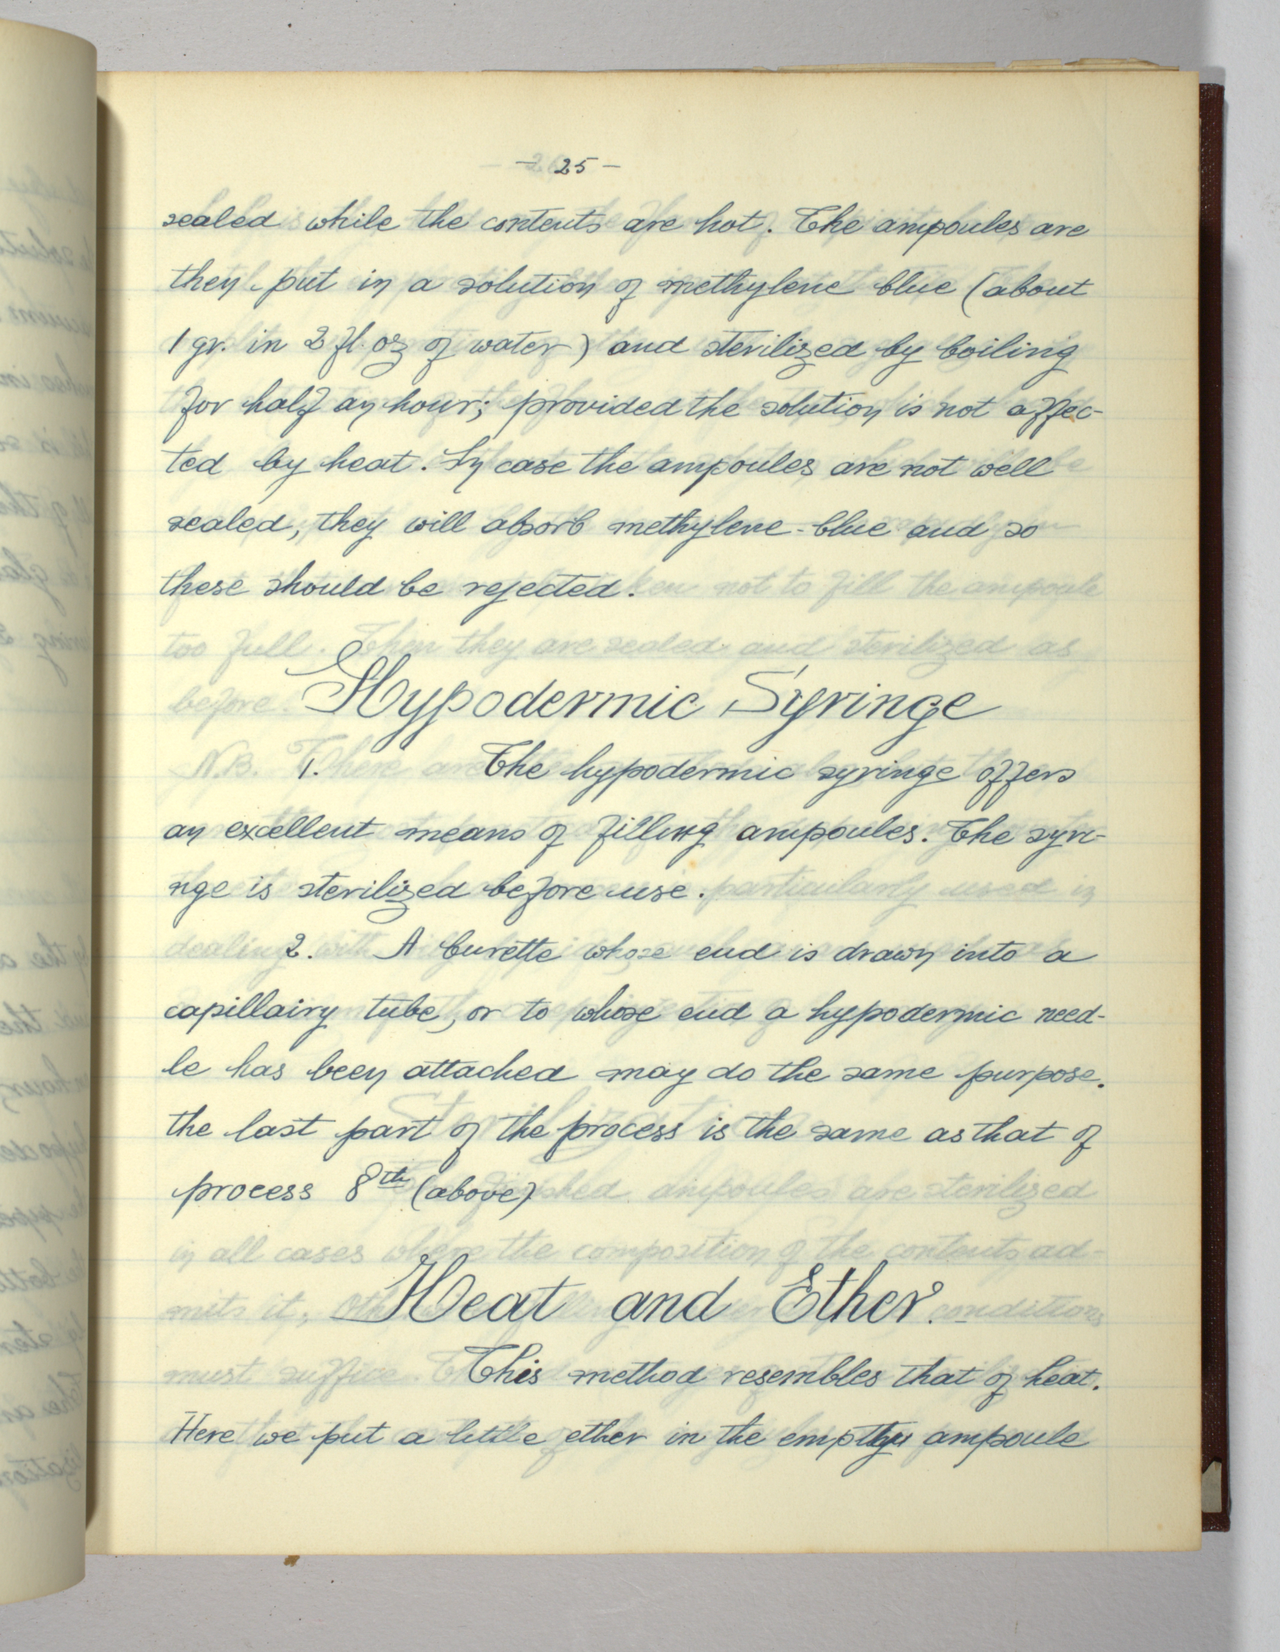 - 25 -
sealed while the contents are hot. The ampoules are
then put in a solution of methylene blue (about
1 gr. in 2 fl oz of water) and sterilized by boiling
for half an hour; provided the solution is not affec-
ted by heat. In case the ampoules are not well
sealed, they will absorb methylene-blue and so
these should be rejected.
Hypodermic Syringe
1. The hypodermic syringe offers
an excellent means of filling ampoules. The syri-
nge is sterilized before use.
2. A burette whose end is drawn into a
capillairy tube, or to whose end a hypodermic need-
le has been attached may do the same purpose.
the last part of the process is the same as that of
process 8th (above)
Heat and Ether.
This method resembles that of heat.
Here we put a little ether in the empthy ampoule